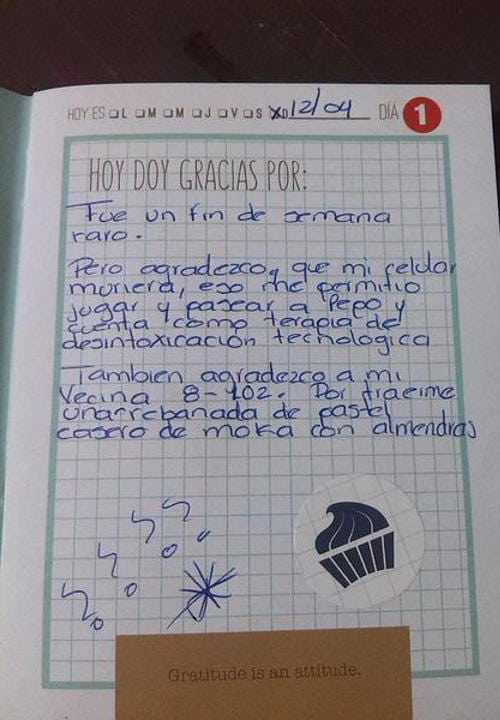 HOY ES L M M J V S D 12/04 DÍA 1
HOY DOY GRACIAS POR:
Fue un fin de semana
raro.
Pero agradezco, que mi celular
muriera, eso me permitio
jugar y pasear a Pepo y
cuenta como terapia de
desintoxicación tecnologica
Tambien agradezco a mi
Vecina 8-402. Por traerme
una rebanada de pastel
casero de moka con almendras
Gratitude is an attitude.